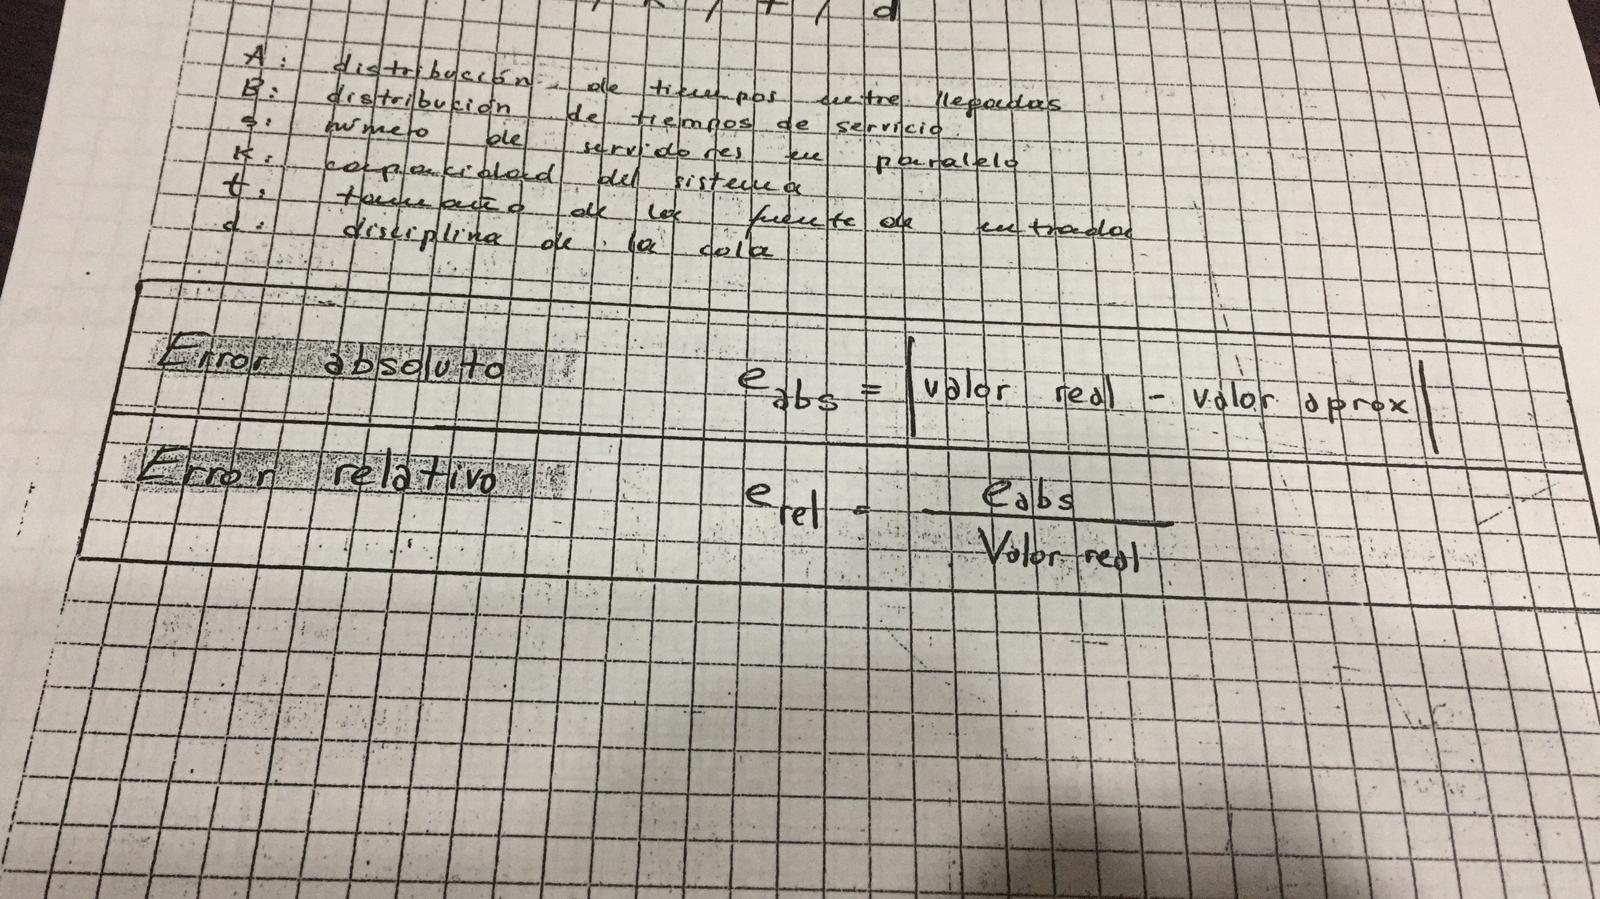 / K / t / d
A: distribución de tiempos entre llegadas
B: distribución de tiempos de servicio
s: número de servidores en paralelo
K: capacidad del sistema
t: tamaño de la fuente de entrada
d: disciplina de la cola
Error absoluto e_abs = |valor real - valor aprox|
Error relativo e_rel = e_abs / Valor real